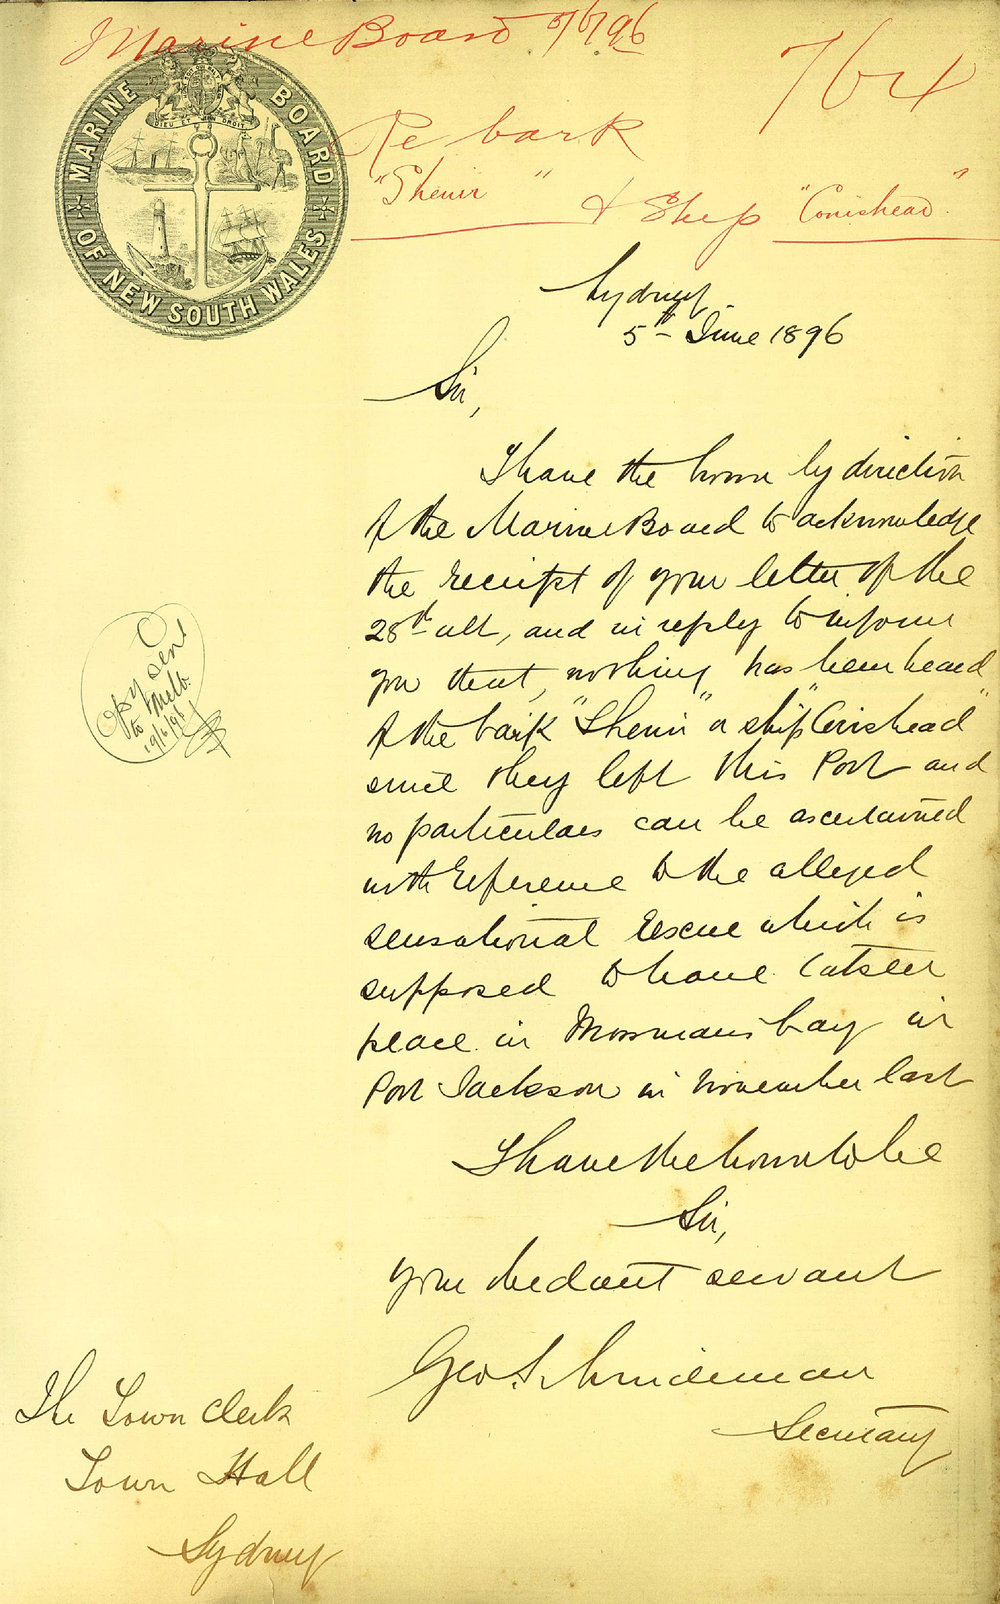 Marine Board 5/6/96
764
Re bark
"Shenir" & Ship "Conishead"
MARINE BOARD OF NEW SOUTH WALES
DIEU ET MON DROIT
Sydney
5th June 1896
Sir,
I have the honor by direction
of the Marine Board to acknowledge
the receipt of your letter of the
28th ult, and in reply to inform
you that, nothing has been heard
of the bark "Shenir" or ship "Conishead"
since they left this Port and
no particulars can be ascertained
with reference to the alleged
sensational rescue which is
supposed to have taken
place in Mossmans bay in
Port Jackson in November last
I have the honor to be
Sir,
your obedient servant
Geo S
Secretary
Copy sent
to Melb.
The Town Clerk
Town Hall
Sydney